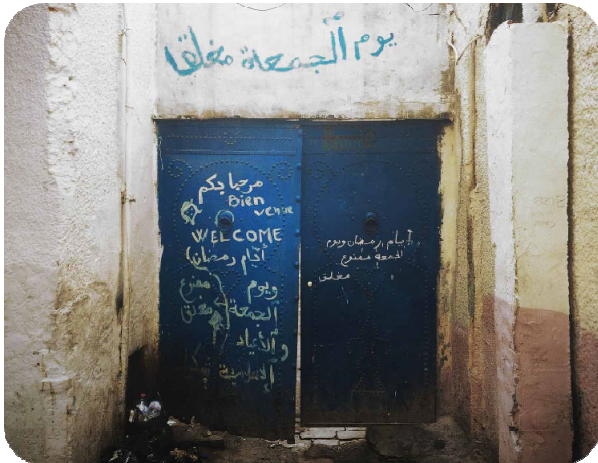 يوم الجمعة مغلق
مرحبا بكم
Bien
venue
WELCOME
أيام رمضان
ويوم ممنوع
الجمعة مغلق
والأعياد
الإسلامية
أيام رمضان ويوم
الجمعة ممنوع
مغلق